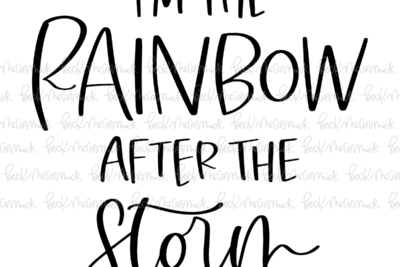 I'M THE
RAINBOW
AFTER THE
Storm